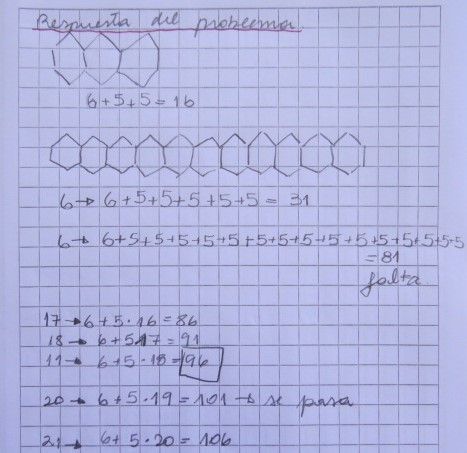 Respuesta del problema.
6+5+5=16
6→ 6+5+5+5+5+5= 31
6→ 6+5+5+5+5+5+5+5+5+5+5+5+5+5+5+5
=81
falta
17→6+5·16=86
18→ 6+5·17=91
11→ 6+5·18=96
20→ 6+5·19=101→ se pasa
21→ 6+5·20=106